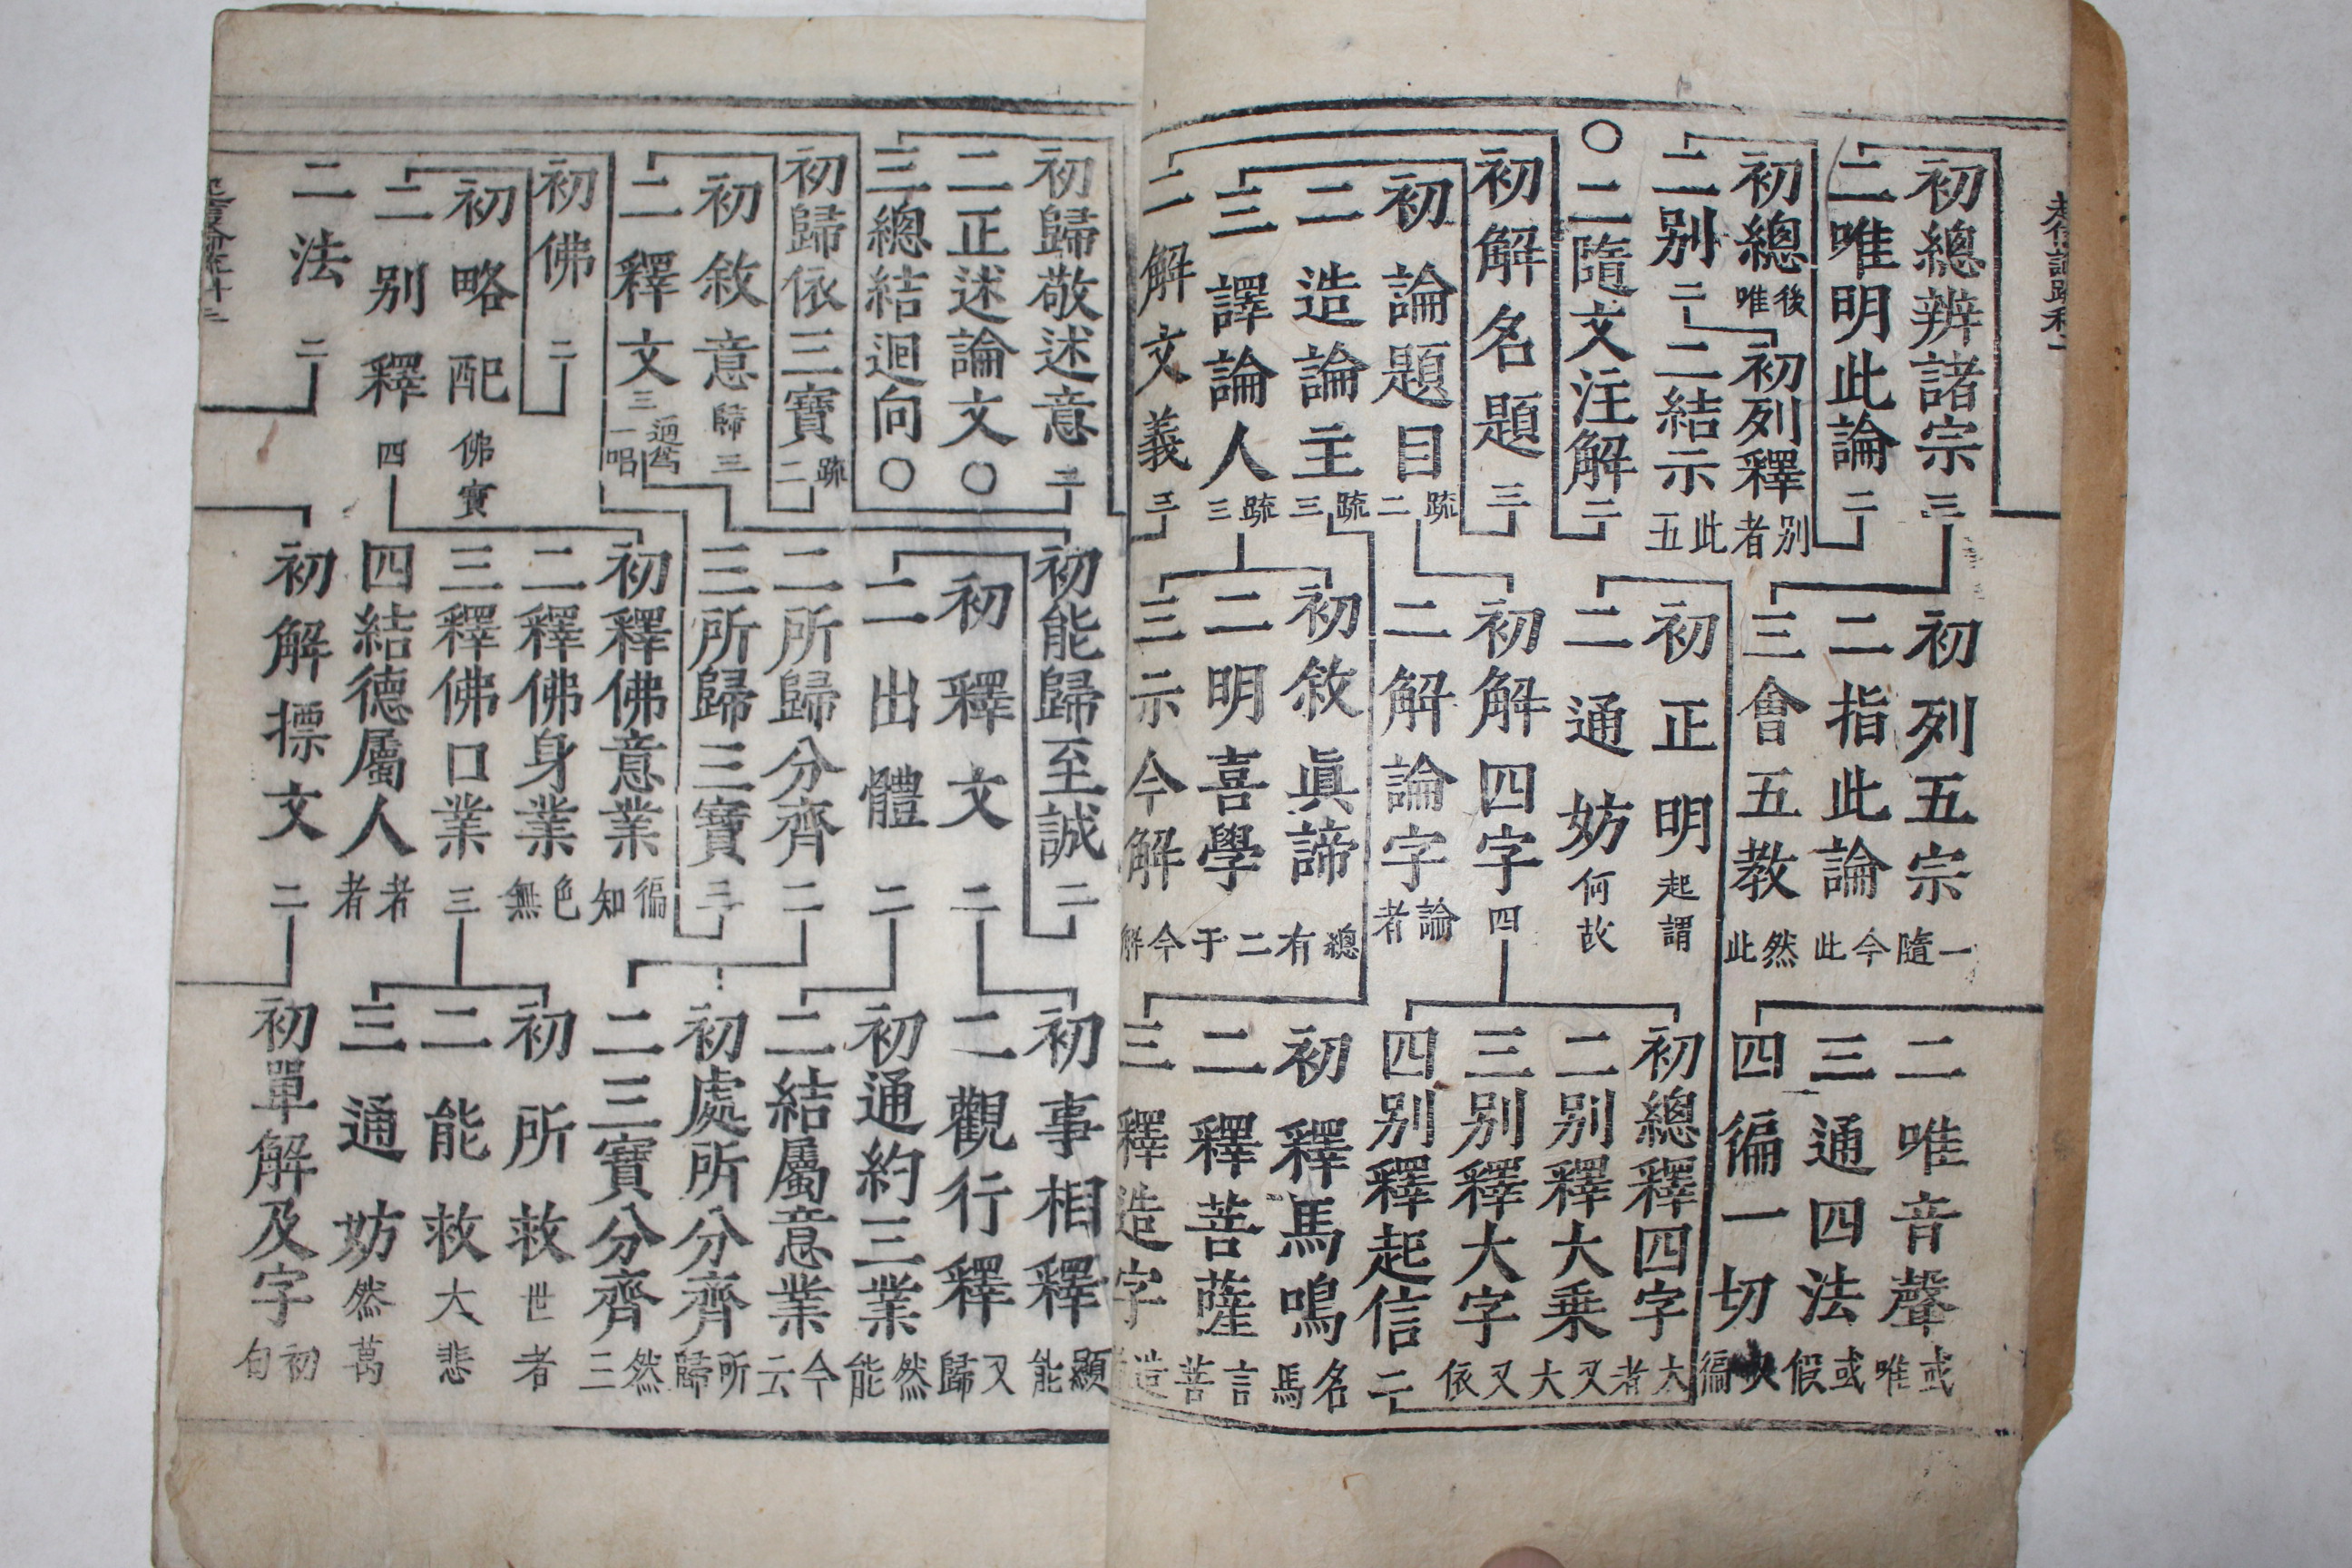 初總辨諸宗三
二唯明此論二
初總後唯
二別二
初列釋別者
二結示此五
○二隨文注解二
初解名題三
初論題目疏二
二造論主疏三
三譯論人疏三
二解文義三
初列五宗一隨
二指此論今此
三會五教然此
初正明起謂
二通妨何故
初解四字四
二解論字論者
初敘眞諦總有
二明喜學二于
三示今解今解
二唯音聲或唯
三通四法或假
四徧一切
初總釋四字大者
二別釋大乗又大
三別釋大字又依
四別釋起信二
初釋馬鳴名馬
二釋菩薩言菩
三釋造字造
初歸敬述意三
二正述論文○
三總結迴向○
初歸依三寶疏二
初敘意歸三
二釋文三
初佛二
初略配佛寶
二別釋四
二法二
初能歸至誠二
初釋文二
二出體二
二所歸分齊二
三所歸三寶三
初釋佛意業徧知
二釋佛身業色無
三釋佛口業三
四結德屬人者者
初解摽文二
初事相釋顯能
二觀行釋又歸
初通約三業然能
二結屬意業今云
初處所分齊所歸
二三寶分齊然三
初所救世者
二能救大悲
三通妨然萬
初單解及字初句